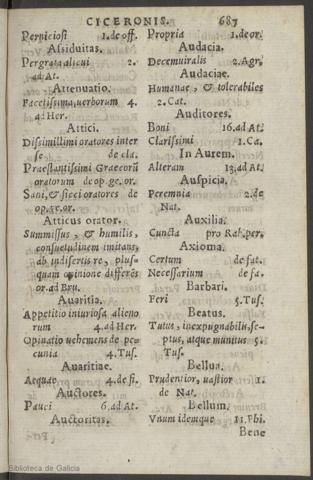 CICERONIS. 687
Perniciosi 1. de off.
Assiduitas.
Pergrata alicui 2.
ad At.
Attenuatio.
Facetissima, uerborum 4.
ad Her.
Attici.
Dissimillimi oratores inter
se de cla.
Praestantissimi Graecorū
oratorum de op. ge. or.
Sani, & sicci oratores de
op. ge. or.
Atticus orator.
Summissus, & humilis,
consuetudinem imitans,
ab indisertis re, plus-
quam opinione differēs
or. ad Bru.
Auaritia.
Appetitio iniuriosa alieno
rum 4. ad Her.
Opinatio uehemens de pe-
cunia 4. Tus.
Auaritiae.
Aequae 4. de fi.
Auctores.
Pauci 6. ad At.
Auctoritas.
Propria 1. de or.
Audacia.
Decemuiralis 2. Agr.
Audaciae.
Humanae, & tolerabiles
2. Cat.
Auditores.
Boni 16. ad At.
Clarissimi 1. Ca.
In Aurem.
Alteram 13. ad At.
Auspicia.
Peremnia 2. de
Nat.
Auxilia.
Cuncta pro Rab. per.
Axioma.
Certum de fat.
Necessarium de fa.
Barbari.
Feri 5. Tus.
Beatus.
Tutus, inexpugnabilis, se-
ptus, atque munitus 5.
Tus.
Bellua.
Prudentior, uastior 1.
de Nat.
Bellum.
Vnum idemque 11. Phi.
Bene
Biblioteca de Galicia